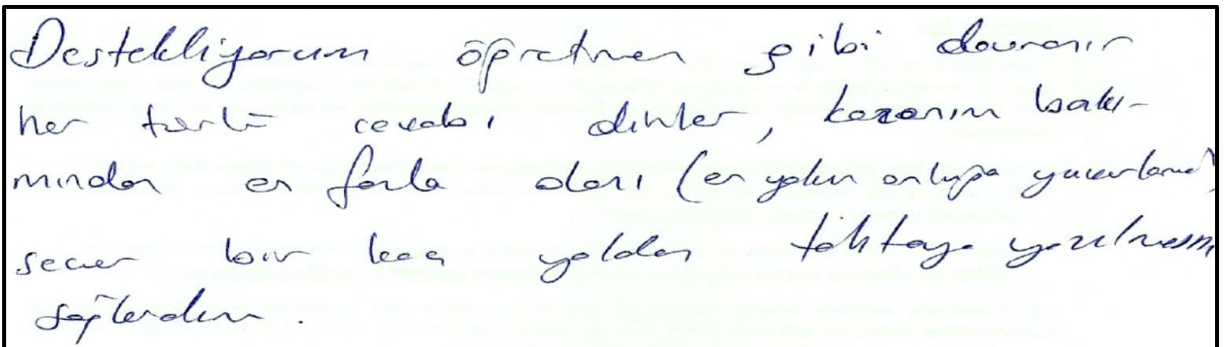 Destekliyorum öğretmen gibi davranır
her türlü cevabı dinler, kazanım bakı-
mından en fazla olanı (en yakın onluğa yuvarlama)
seçer bir kaç yoldan tahtaya yazılmasını
sağlardım.